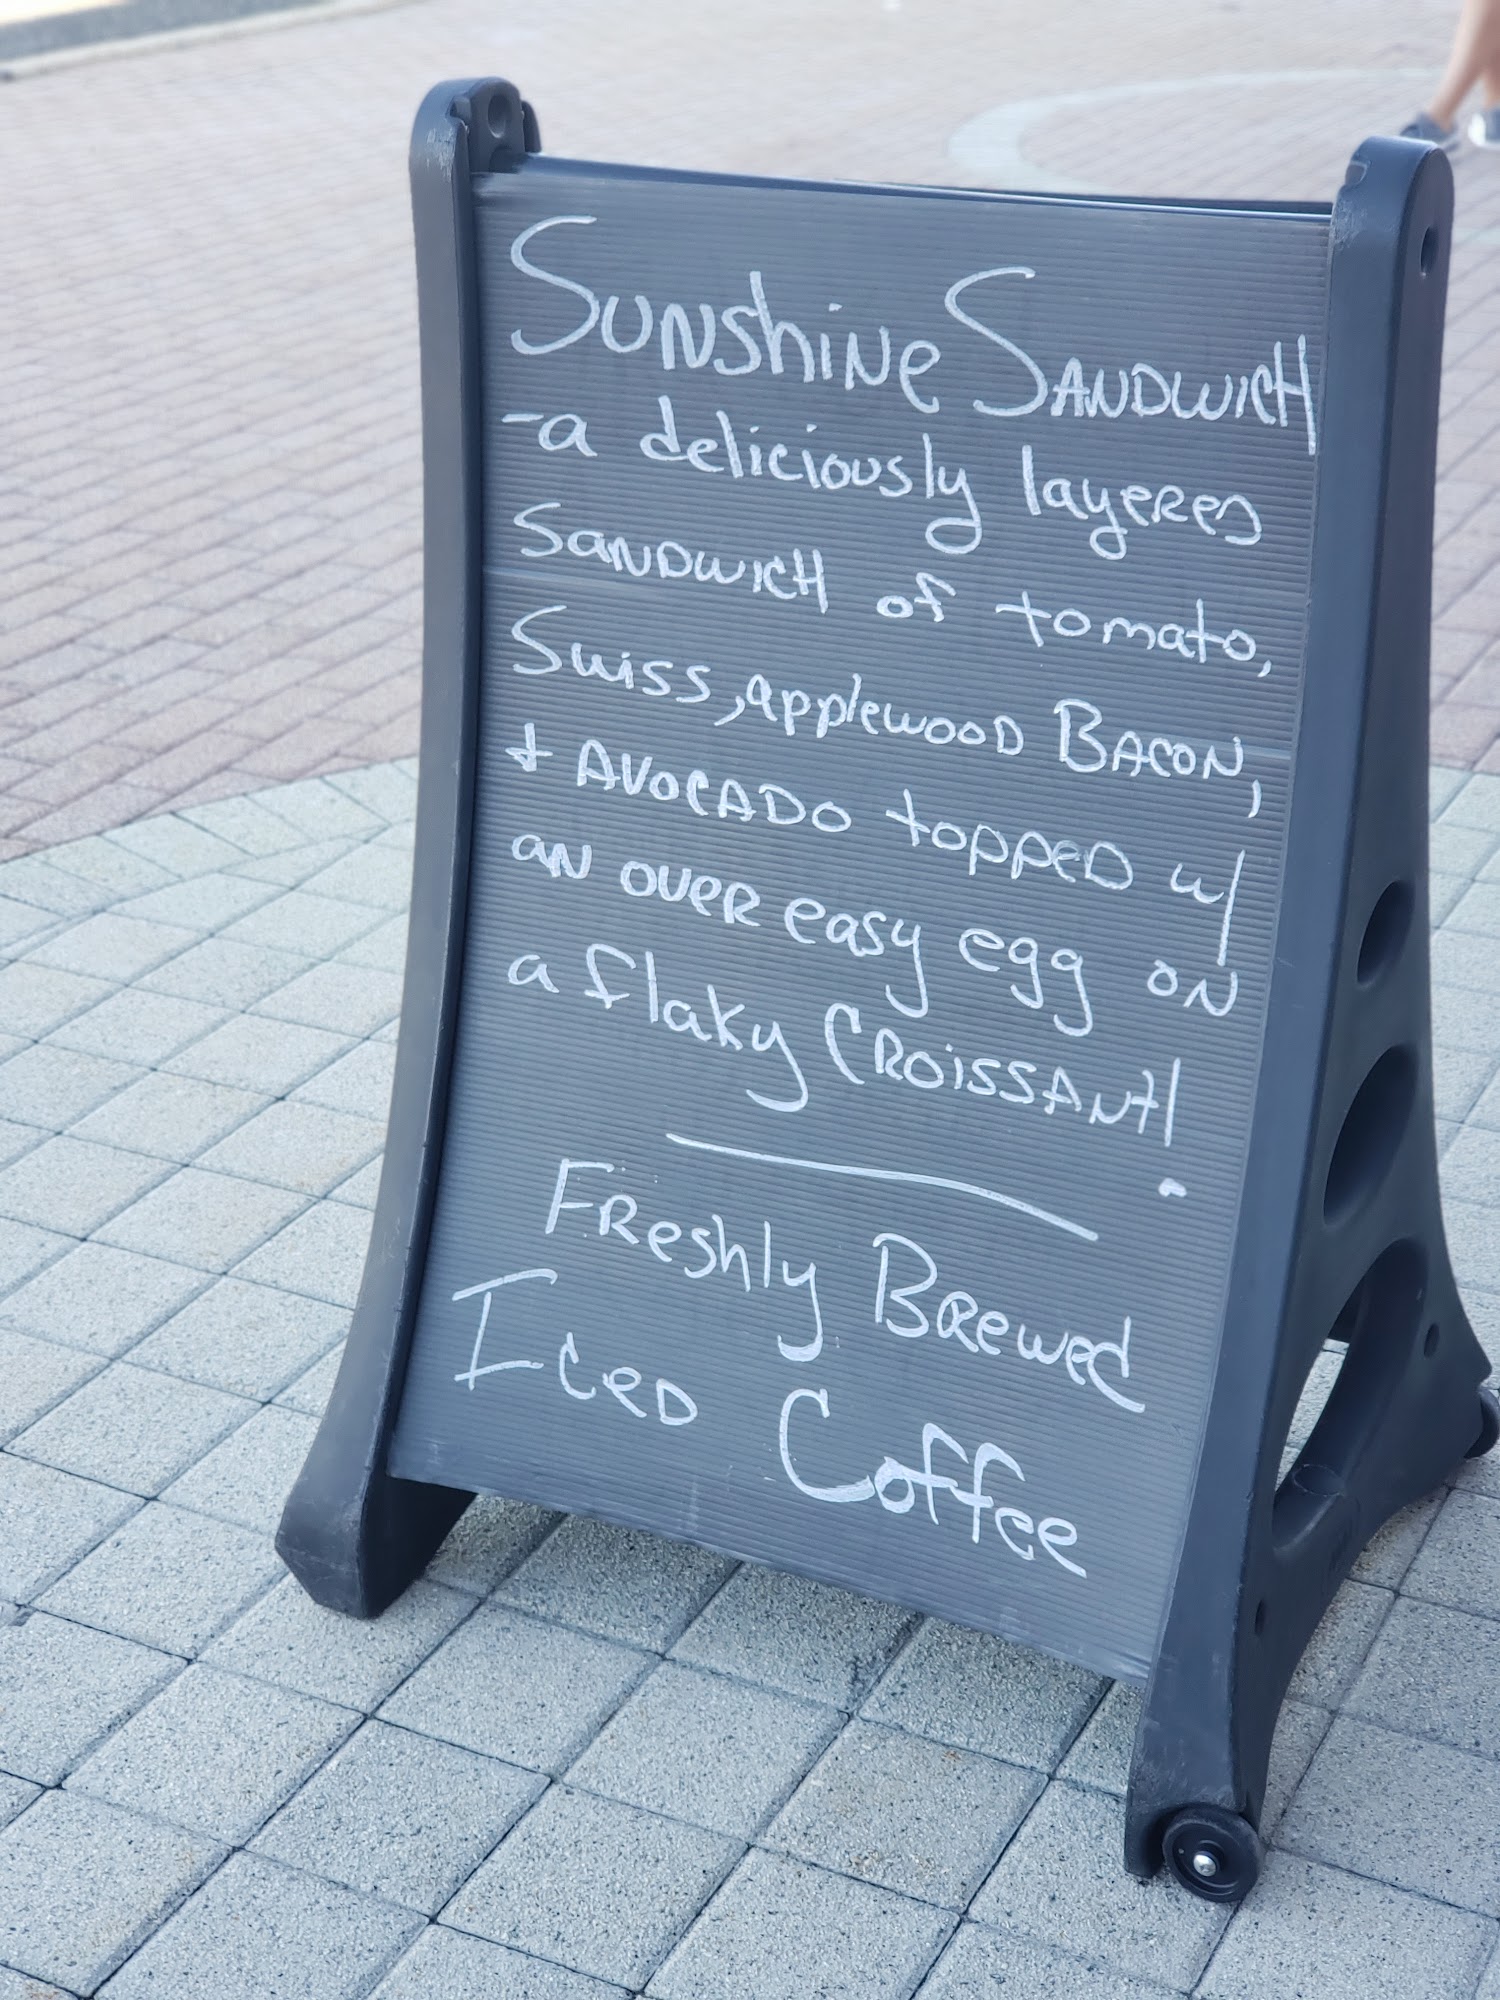 Sunshine Sandwich
-a deliciously layered
Sandwich of tomato,
Swiss, applewood Bacon,
+ Avocado topped w/
an over easy egg on
a flaky Croissant!
Freshly Brewed
Iced Coffee